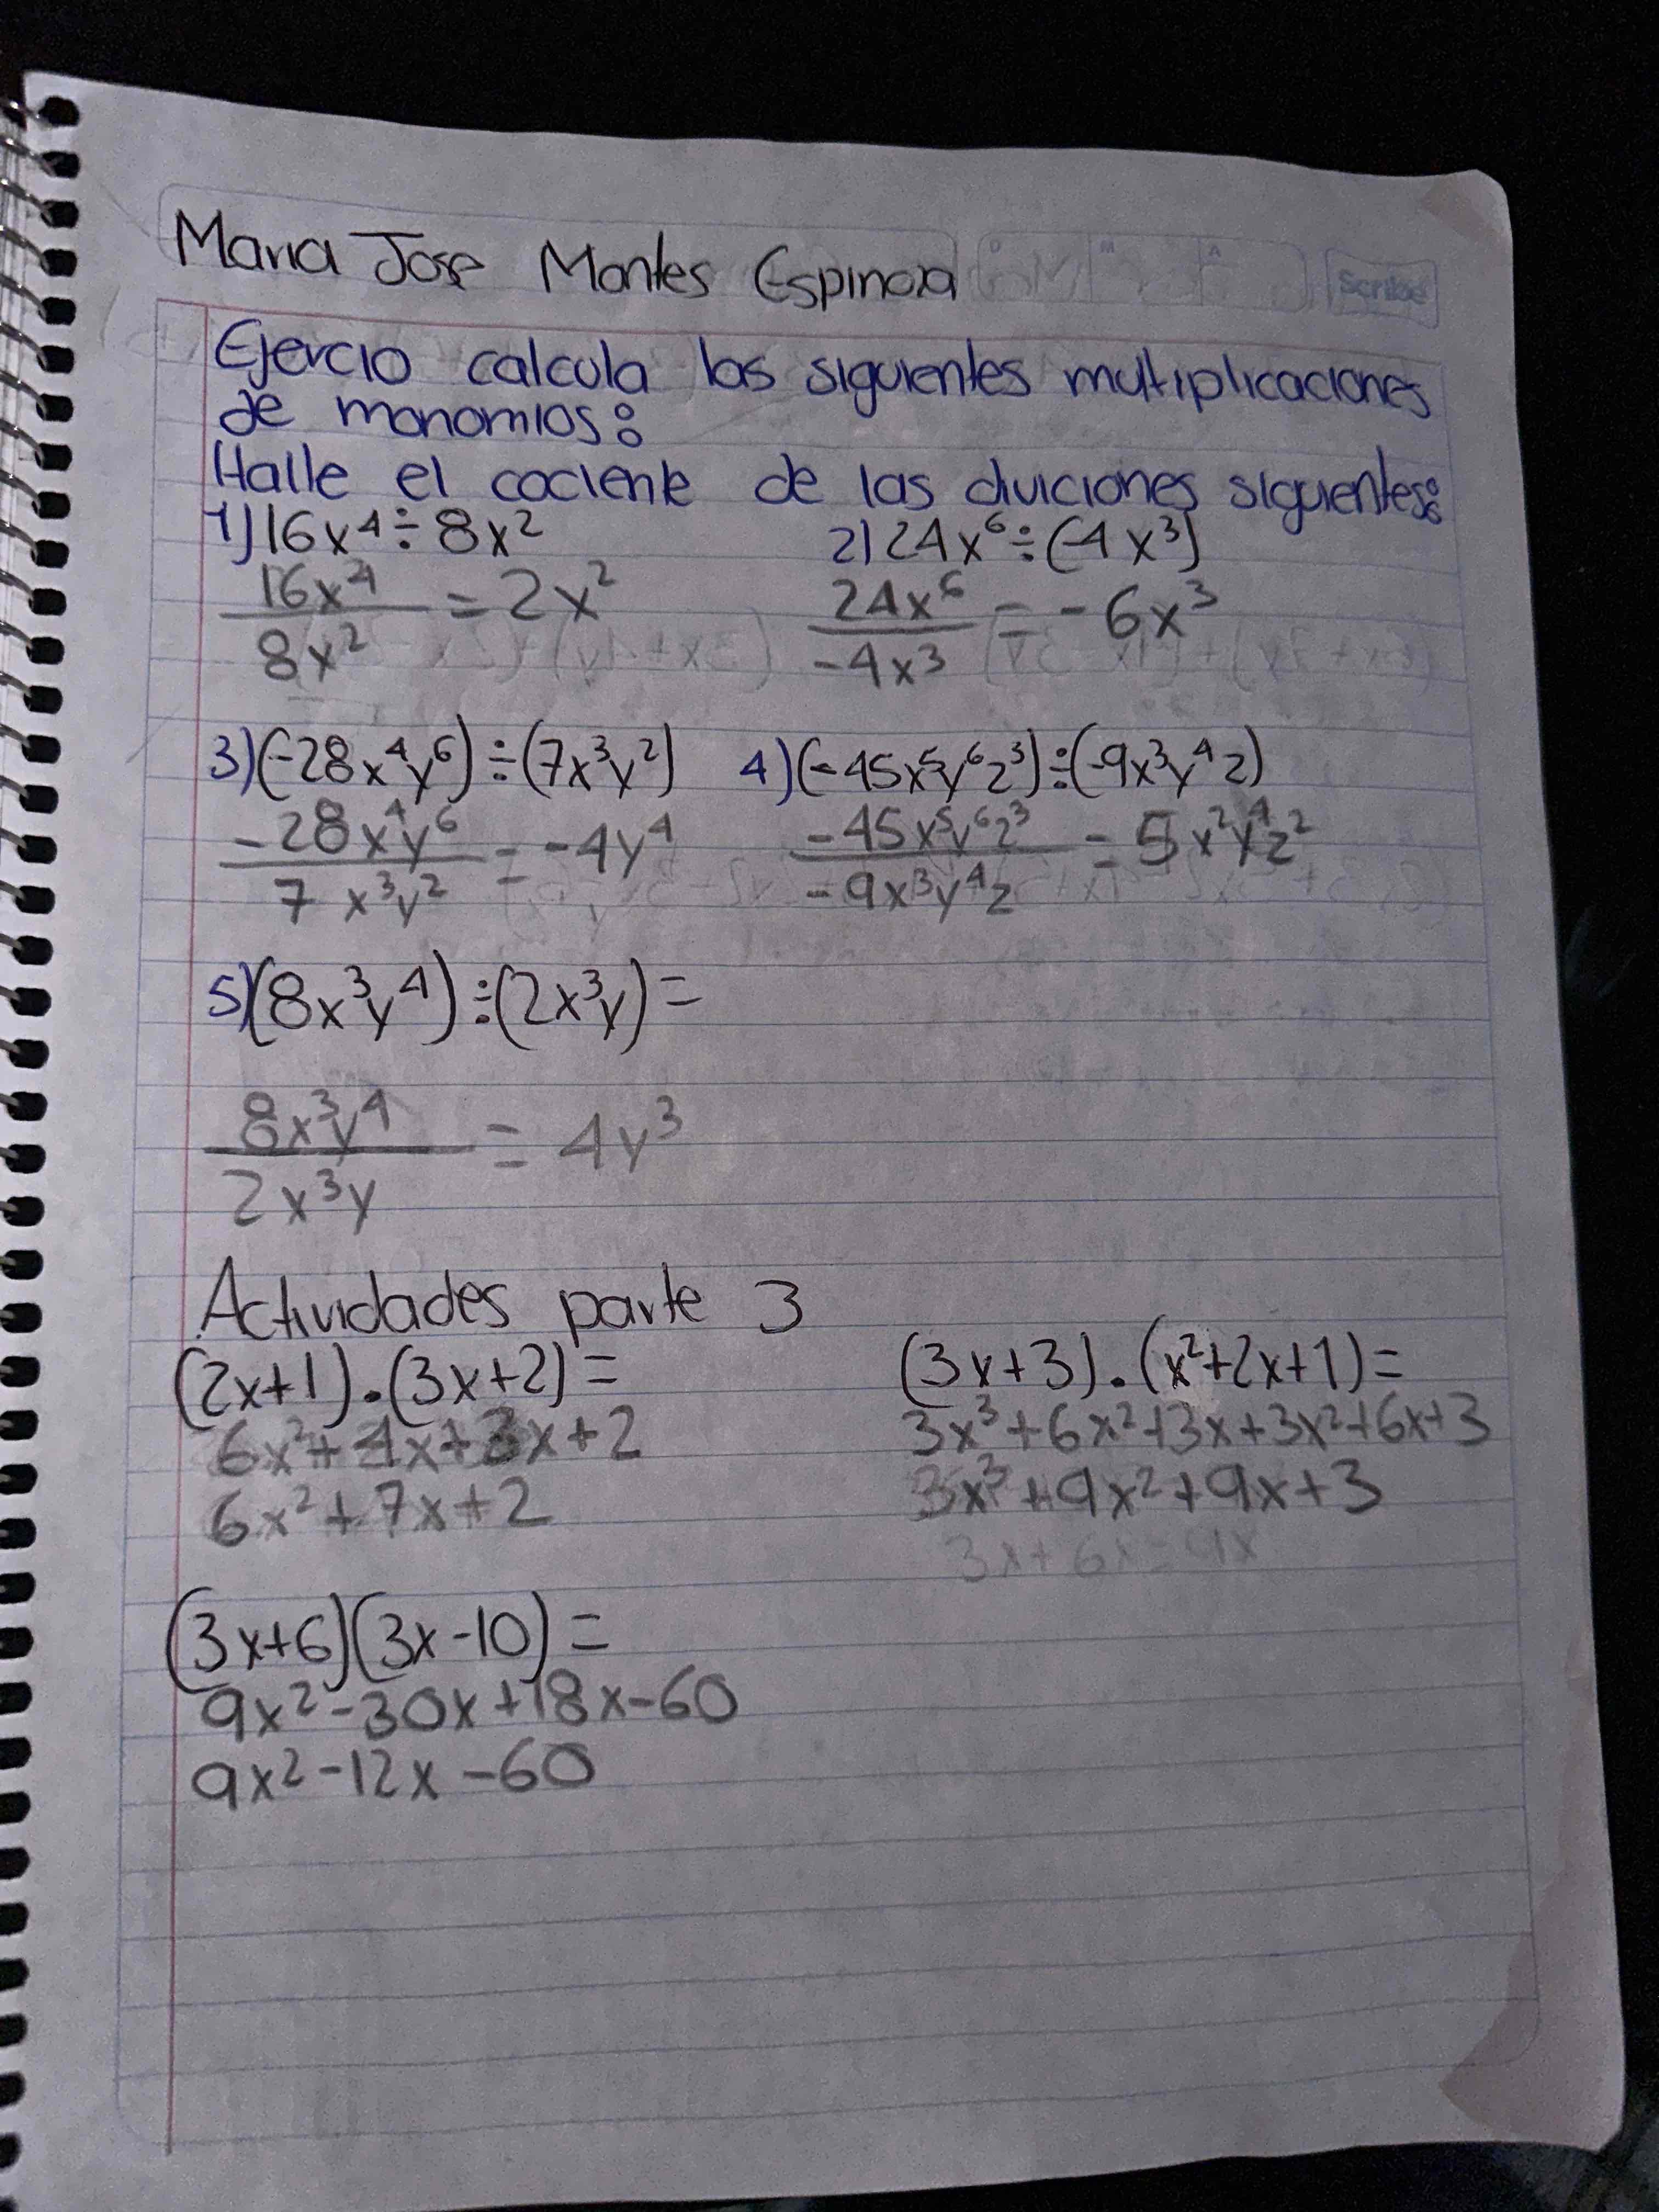 Maria Jose Montes Espinoza
D M A
Scribe
Ejercio calcula las siguientes multiplicaciones
de monomios:
Halle el cociente de las diviciones siguientes:
1) 16x⁴ ÷ 8x² 2) 24x⁶ ÷ (-4x³)
16x⁴/8x² = 2x² 24x⁶/-4x³ = -6x³
3) (-28x⁴y⁶) ÷ (7x³y²) 4) (-45x⁵y⁶z³) ÷ (-9x³y⁴z)
-28x⁴y⁶/7x³y² = -4y⁴ -45x⁵y⁶z³/-9x³y⁴z = 5x²y⁴z²
5) (8x³y⁴) ÷ (2x³y) =
8x³y⁴/2x³y = 4y³
Actividades parte 3
(2x+1).(3x+2)= (3x+3).(x²+2x+1)=
6x²+4x+3x+2 3x³+6x²+3x+3x²+6x+3
6x²+7x+2 3x³+9x²+9x+3
3x+6x=9x
(3x+6)(3x-10)=
9x²-30x+18x-60
9x²-12x-60